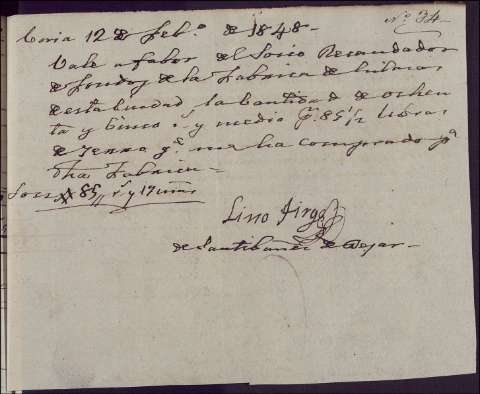 Nº 34
Coria 12 de Febº de 1848-
Vale a fabor del Socio Recaudador
de fondos de la Fabrica de
de esta Ciudad la Cantidad de ochen
ta y Cinco rˢ y medio pʳ 85½ libras
de Yerro qᵉ me ha comprado pª
dha Fabrica-
Son 85 rˢ y 17 mrs
Lino
de Santibañez de Bejar-